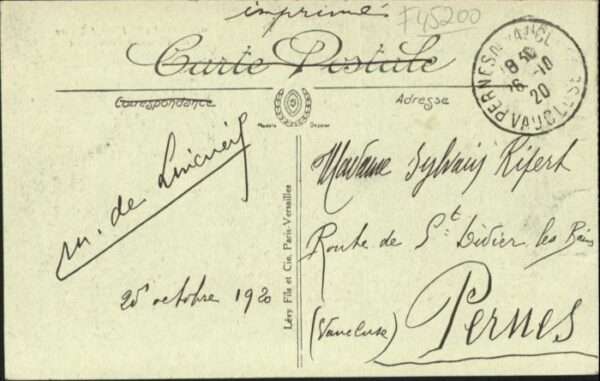 imprimés
F45200
Carte Postale
Correspondance
Adresse
PERNES VAUCLUSE
18 30
26 -10
20
Madame Sylvain Rifert
Route de St Didier les Bains
Pernes
(Vaucluse)
m. de
25 octobre 1920
Lévy Fils et Cie, Paris-Versailles